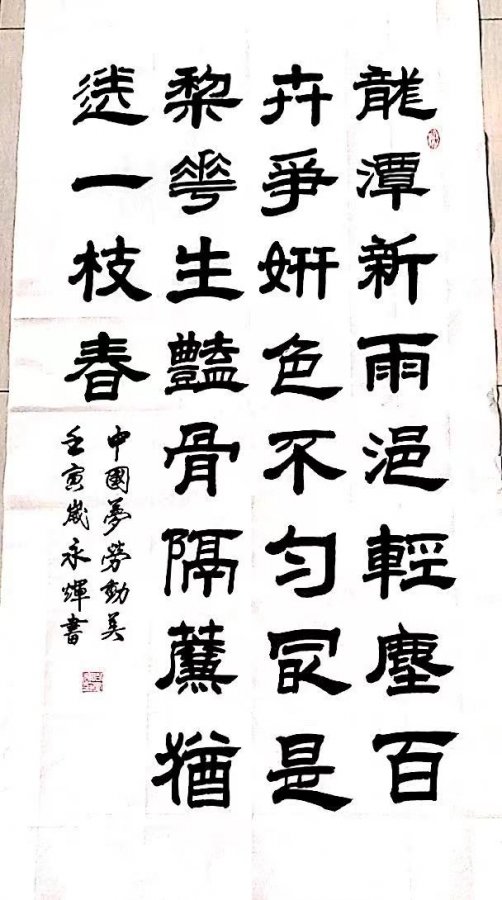 龍潭新雨浥輕塵百
卉爭妍色不勻是
棃華生豔骨隔薕猶
送一枝春
中國夢勞動美
壬寅歲永輝書